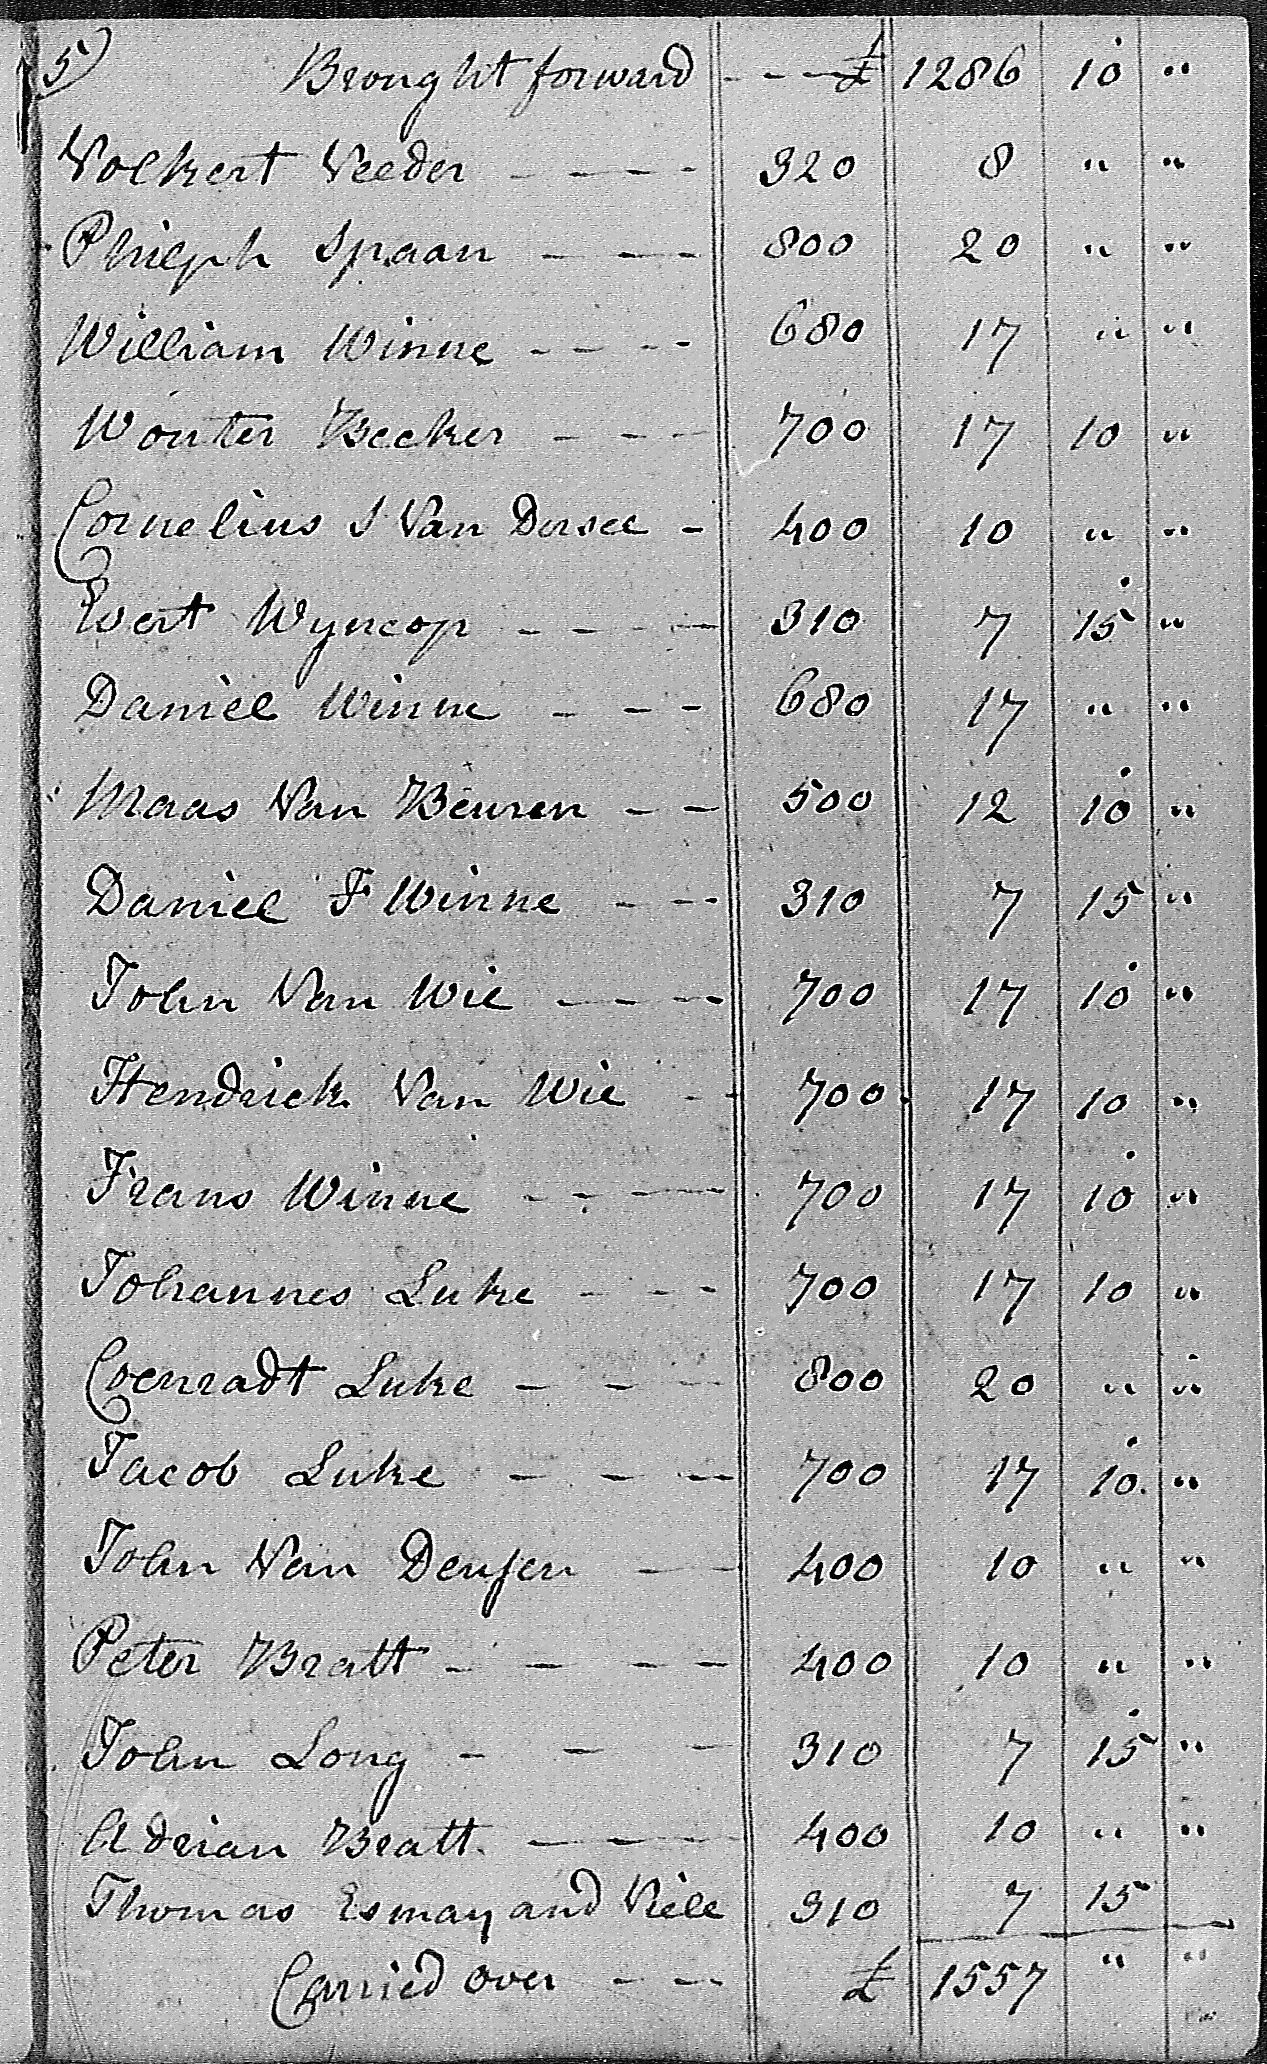 5) Brought forward - - - £ 1286 10 "
Volkert Veeder - - - - 320 8 " "
Philiph Spaan - - - 800 20 " "
William Winne - - - - 680 17 " "
Wouter Becker - - - 700 17 10 "
Cornelius J Van Dersee - 400 10 " "
Evert Wyncop - - - - 310 7 15 "
Daniel Winne - - - 680 17 " "
Maas Van Beuren - - 500 12 10 "
Daniel F Winne - - - 310 7 15 "
John Van Wie - - - - 700 17 10 "
Hendrick Van Wie - - 700 17 10 "
Frans Winne - - - 700 17 10 "
Johannes Luke - - - 700 17 10 "
Coenradt Luke - - - 800 20 " "
Jacob Luke - - - 700 17 10 "
John Van Deusen - - 400 10 " "
Peter Bratt - - - - 400 10 " "
John Long - - - 310 7 15 "
Adrian Bratt - - - 400 10 " "
Thomas Esmay and Viele 310 7 15
Carried over - - - £ 1557 " "